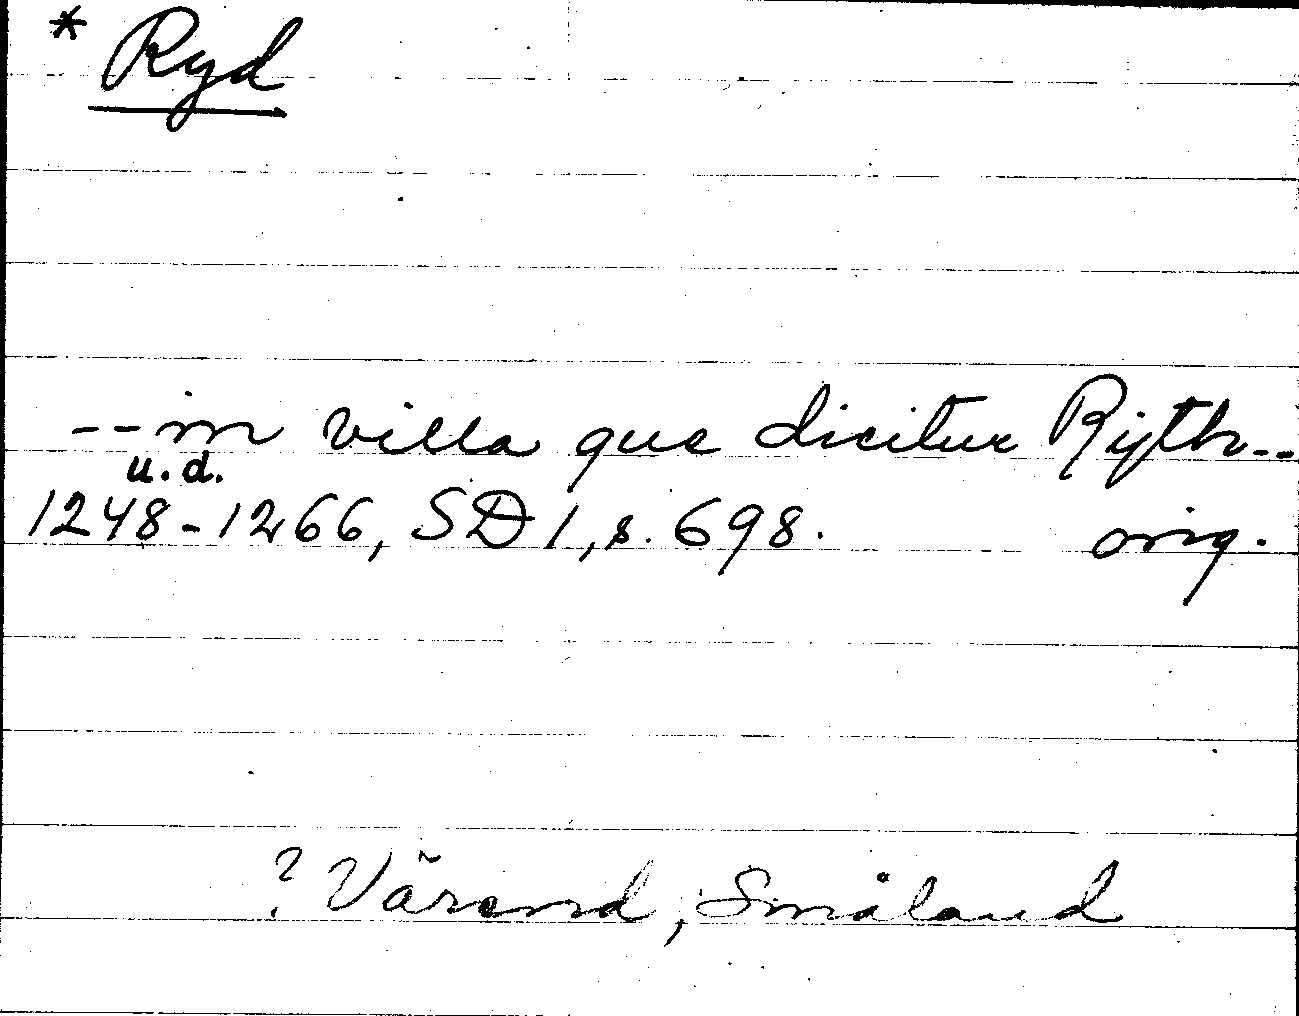 * Ryd
-- in villa que dicitur Rijth --
u.d.
1248-1266, SD 1, s. 698. orig.
? Värend, Småland